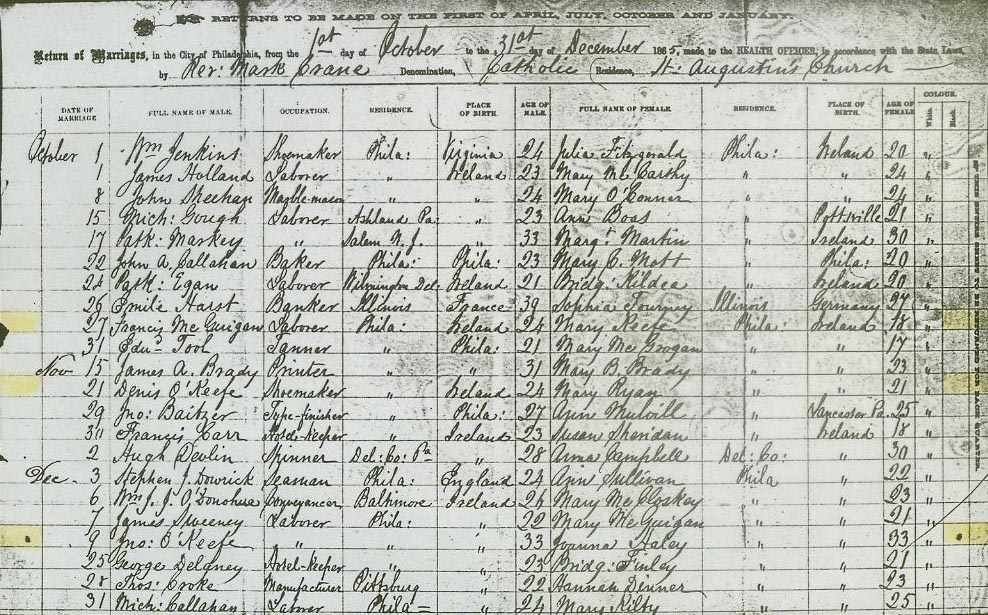 RETURNS TO BE MADE ON THE FIRST OF APRIL, JULY, OCTOBER AND JANUARY.
Return of Marriages, in the City of Philadelphia, from the 1st day of October to the 31st day of December 1865, made to the HEALTH OFFICER, in accordance with the State Laws,
by Rev: Mark Crane Denomination, Catholic Residence, St: Augustin's Church
DATE OF MARRIAGE FULL NAME OF MALE. OCCUPATION. RESIDENCE. PLACE OF BIRTH. AGE OF MALE. FULL NAME OF FEMALE. RESIDENCE. PLACE OF BIRTH. AGE OF FEMALE. COLOUR. White. Black.
October 1 Wm Jenkins Shoemaker Phila: Virginia 24 Julia Fitzgerald Phila: Ireland 20 "
1 James Holland Laborer " Ireland 23 Mary McCarthy " " 24 "
8 John Sheehan Marble-mason " " 24 Mary O'Conner " " 24 "
15 Mich: Gough Laborer Ashland Pa: " 23 Ann Boas " Pottsville 21 "
17 Patk: Markey " Salem N.J. " 33 Margt Martin " Ireland 30 "
22 John A. Callahan Baker Phila: Phila: 23 Mary C. Mott " Phila: 20 "
24 Patk: Egan Laborer Wilmington Del: Ireland 21 Bridg: Kildea " Ireland 20 "
26 Emile Harst Banker Illinois France 39 Sophia Illinois Germany 27 "
27 Francis McGuigan Laborer Phila: Ireland 24 Mary Keefe Phila: Ireland 18 "
31 Edwd Tool Tanner " Phila: 21 Mary McGrogan " " 17 "
Nov 15 James A. Brady Printer " " 31 Mary B. Brady " " 23 "
21 Denis O'Keefe Shoemaker " Ireland 24 Mary Ryan " " 21 "
29 Jno: Baitzer Type-finisher " Phila: 27 Ann Mulvill " Lancaster Pa. 25 "
30 Francis Carr Hotel-keeper " Ireland 23 Susan Sheridan " Ireland 18 "
2 Hugh Devlin Spinner Del: Co: Pa " 28 Anna Campbell Del: Co: " 30 "
Dec. 3 Stephen J. Dowrick Seaman Phila: England 24 Ann Sullivan Phila " 22 "
6 Wm J. J. O'Donohue Conveyancer Baltimore Ireland 26 Mary McCloskey " " 23 "
7 James Sweeney Laborer Phila: " 22 Mary McGuigan " " 21 "
9 Jno: O'Keefe " " " 33 Joanna Haley " " 33 "
25 George Delaney Hotel-keeper " " 23 Bridg: Finley " " 21 "
28 Thos: Cooke Manufacturer Pittsburg " 22 Hannah Dinner " " 23 "
31 Mich: Callahan Laborer Phila " 24 Mary Kilby " " 25 "